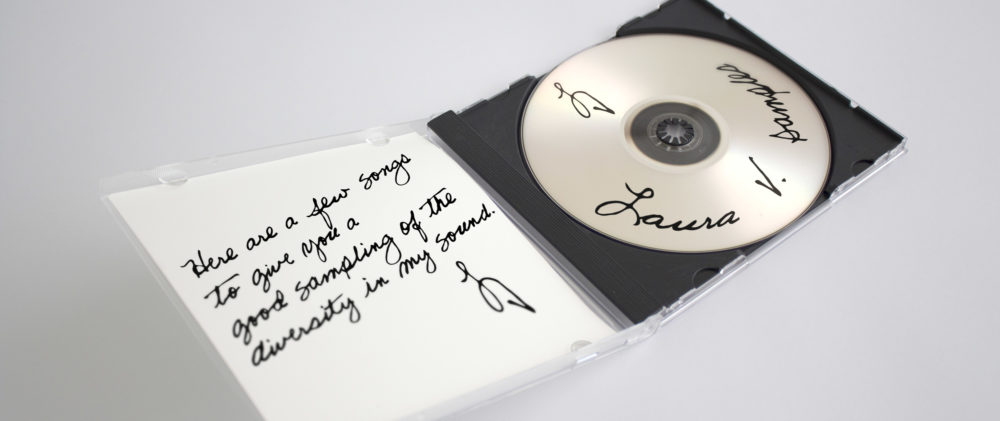 Here are a few songs
to give you a
good sampling of the
diversity in my sound.
LV
Laura V.
samples
LV